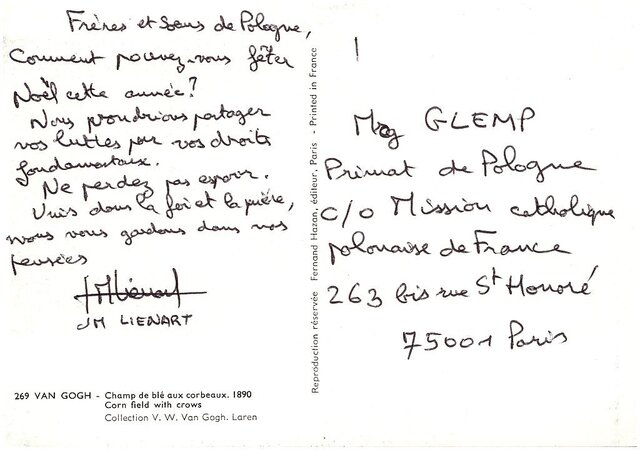 Frères et Sœurs de Pologne,
Comment pouvez-vous fêter
Noël cette année?
Nous voudrions partager
vos luttes pour vos droits
fondamentaux.
Ne perdez pas espoir.
Unis dans la foi et la prière,
nous vous gardons dans nos
pensées
JM Lienart
JM LIENART
269 VAN GOGH - Champ de blé aux corbeaux. 1890
Corn field with crows
Collection V. W. Van Gogh. Laren
Reproduction réservée Fernand Hazan, éditeur, Paris - Printed in France
Mgg GLEMP
Primat de Pologne
c/o Mission catholique
polonaise de France
263 bis rue St Honoré
75001 Paris